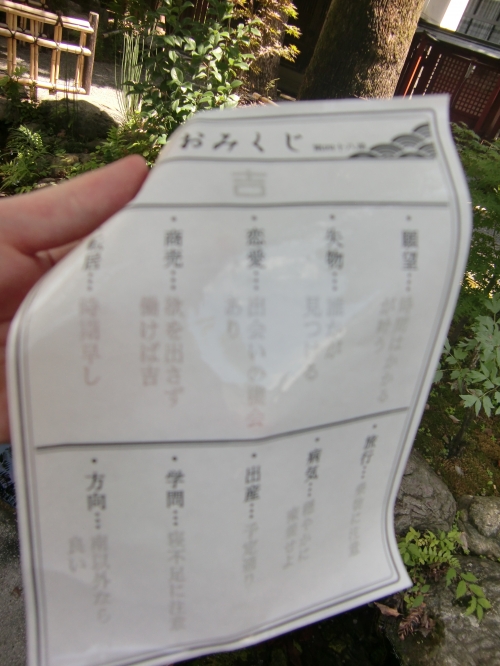 おみくじ 第四十六番
吉
・願望…時間はかかるが叶う
・失物…誰かが見つける
・恋愛…出会いの機会あり
・商売…欲を出さず働けば吉
・転居…時期早し
・旅行…
・病気…
・出産…予定通り
・学問…寝不足に注意
・方向…南以外なら良い